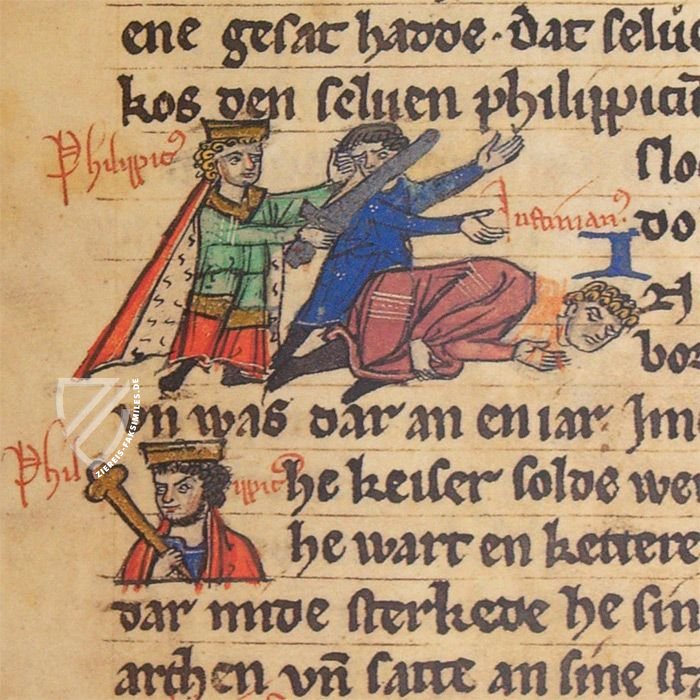 ene gesat hadde. Dat selue
kos den seluen philippicū
Philippicꝰ
slo
Iustinianꝰ
do
I
bor
was dar an en iar. Im
Phil ippicꝰ
he keiser solde wer
he wart en kettere
dar mide sterkede he sin
archen vn̄ satte an sine st
ZIEREIS-FAKSIMILES.DE